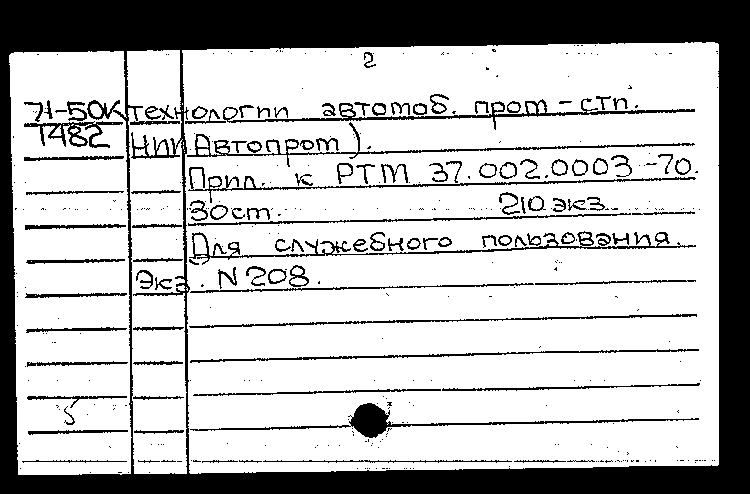 2
71-50К технологии автомоб. пром-сти.
1482 НИИАвтопром).
Прил. к РТМ 37.002.0003-70.
30ст. 210 экз.
Для служебного пользования.
Экз. N208.
5